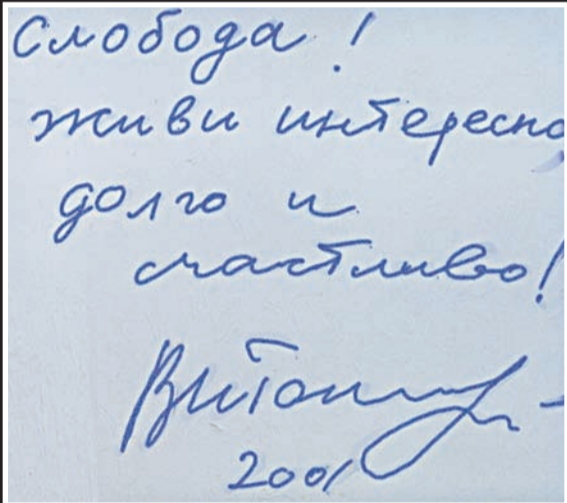 Слобода!
живи интересно
долго и
счастливо!
2001